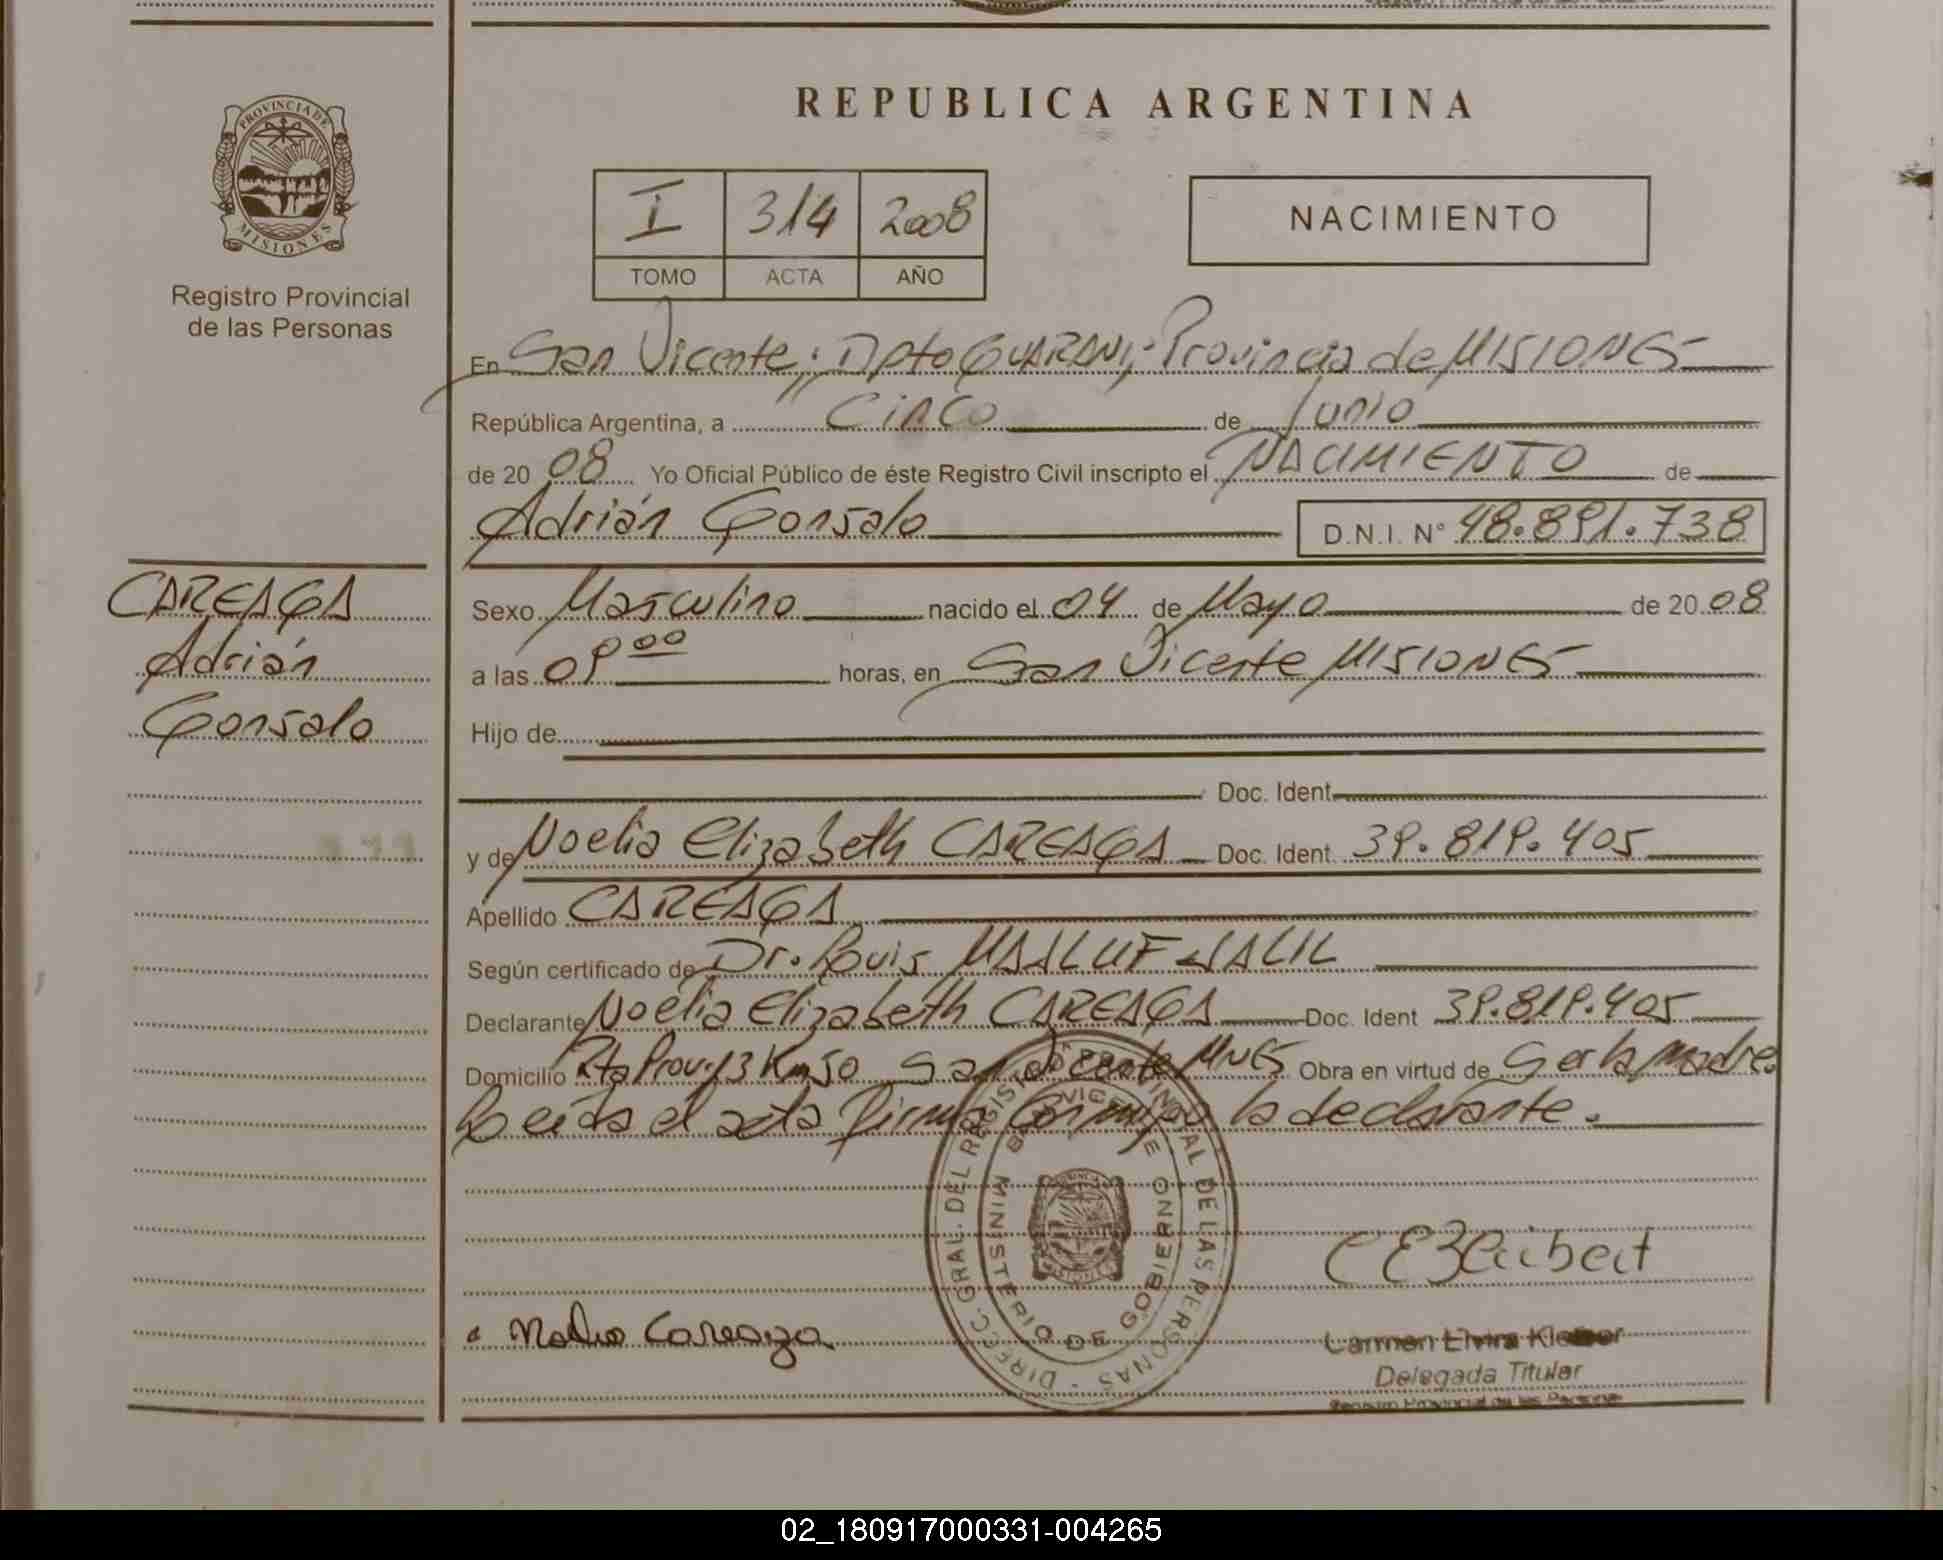 REPUBLICA ARGENTINA
PROVINCIA DE
MISIONES
Registro Provincial
de las Personas
I 314 2008
TOMO ACTA AÑO
NACIMIENTO
En San Vicente; Dpto GUARANI; Provincia de MISIONES
República Argentina, a Cinco de Junio
de 20 08 Yo Oficial Público de éste Registro Civil inscripto el NACIMIENTO de
Adrián Gonsalo D.N.I. N° 48.891.738
CAREAGA
Adrián
Gonsalo
Sexo Masculino nacido el 04 de Mayo de 20 08
a las 09 00 horas, en San Vicente MISIONES
Hijo de
Doc. Ident
y de Noelia Elizabeth CAREAGA Doc. Ident. 39.819.405
Apellido CAREAGA
Según certificado de Dr. Louis MAALUF JALIL
Declarante Noelia Elizabeth CAREAGA Doc. Ident 39.819.405
Domicilio Rta Prov. 13 Km 50 San Vicente MNES Obra en virtud de Ser la madre.
Leída el acta Firma Conmigo la declarante.
DIREC. GRAL. DEL REGISTRO PROVINCIAL DE LAS PERSONAS
MINISTERIO DE GOBIERNO
Careaga
Carmen Elvira
Delegada Titular
Registro Provincial de las Personas
02_180917000331-004265